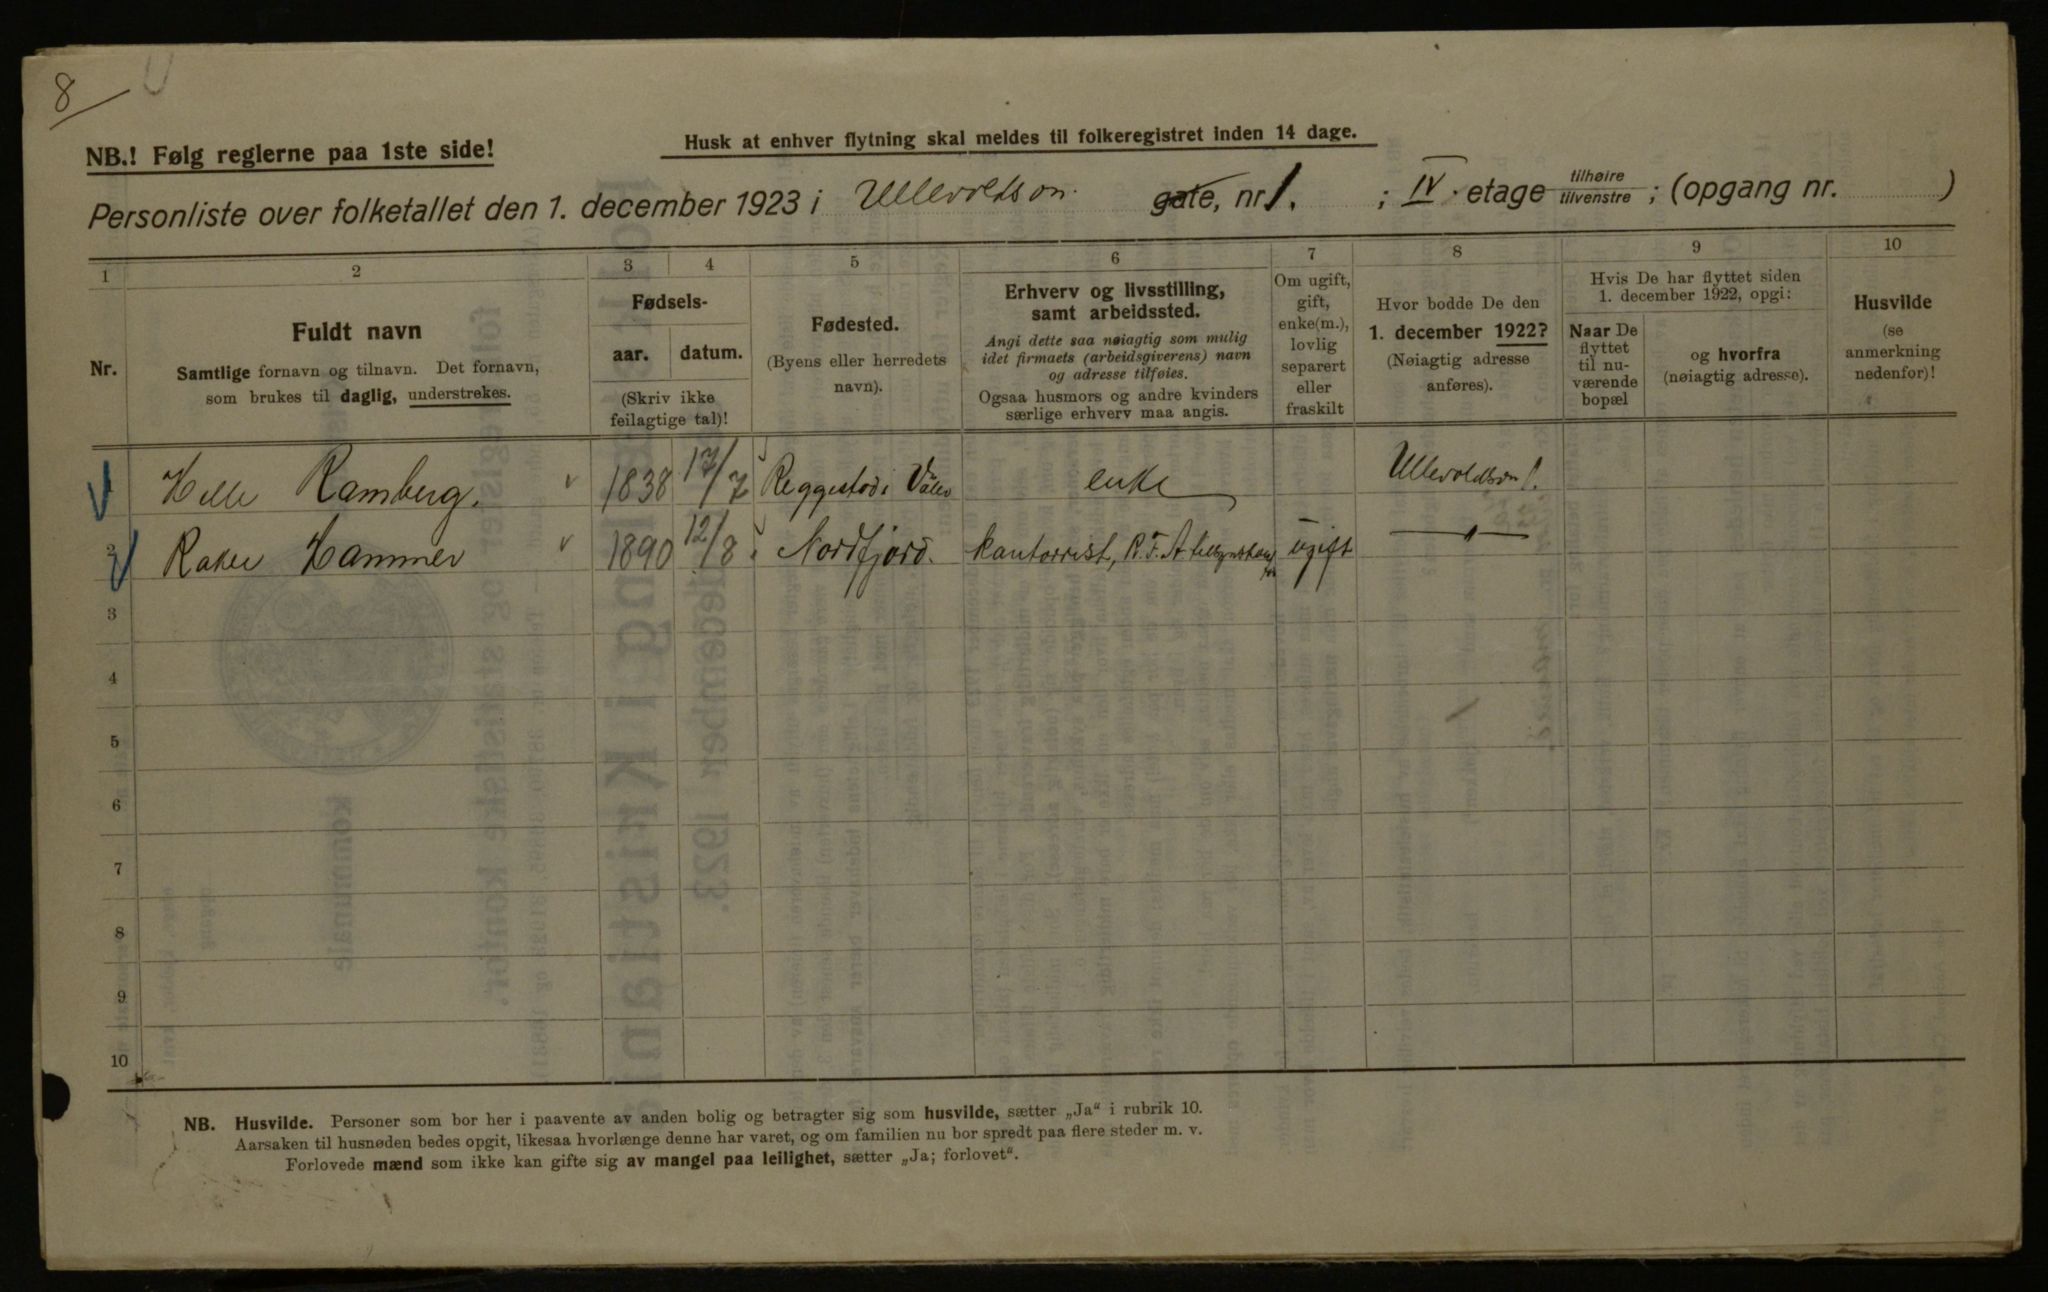 8
NB.! Følg reglerne paa 1ste side!
Husk at enhver flytning skal meldes til folkeregistret inden 14 dage.
Personliste over folketallet den 1. december 1923 i Ullevoldsvn. gate, nr. 1. ; IV. etage tilhøire tilvenstre ; (opgang nr. )
1 2 3 4 5 6 7 8 9 10
Nr.
Fuldt navn
Samtlige fornavn og tilnavn. Det fornavn,
som brukes til daglig, understrekes.
Fødsels-
aar. datum.
(Skriv ikke
feilagtige tal)!
Fødested.
(Byens eller herredets
navn).
Erhverv og livsstilling,
samt arbeidssted.
Angi dette saa nøiagtig som mulig
idet firmaets (arbeidsgiverens) navn
og adresse tilføies.
Ogsaa husmors og andre kvinders
særlige erhverv maa angis.
Om ugift,
gift,
enke(m.),
lovlig
separert
eller
fraskilt
Hvor bodde De den
1. december 1922?
(Nøiagtig adresse
anføres).
Hvis De har flyttet siden
1. december 1922, opgi:
Naar De
flyttet
til nu-
værende
bopæl
og hvorfra
(nøiagtig adresse).
Husvilde
(se
anmerkning
nedenfor)!
1 Helle Ramberg. 1838 17/7 Reggestad i Våler enke Ullevoldsvn 1.
2 Hammer 1890 12/8 Nordfjord. kantorrist, ugift —„—
3
4
5
6
7
8
9
10
NB. Husvilde. Personer som bor her i paavente av anden bolig og betragter sig som husvilde, sætter „Ja“ i rubrik 10.
Aarsaken til husnøden bedes opgit, likesaa hvorlænge denne har varet, og om familien nu bor spredt paa flere steder m. v.
Forlovede mænd som ikke kan gifte sig av mangel paa leilighet, sætter „Ja; forlovet“.